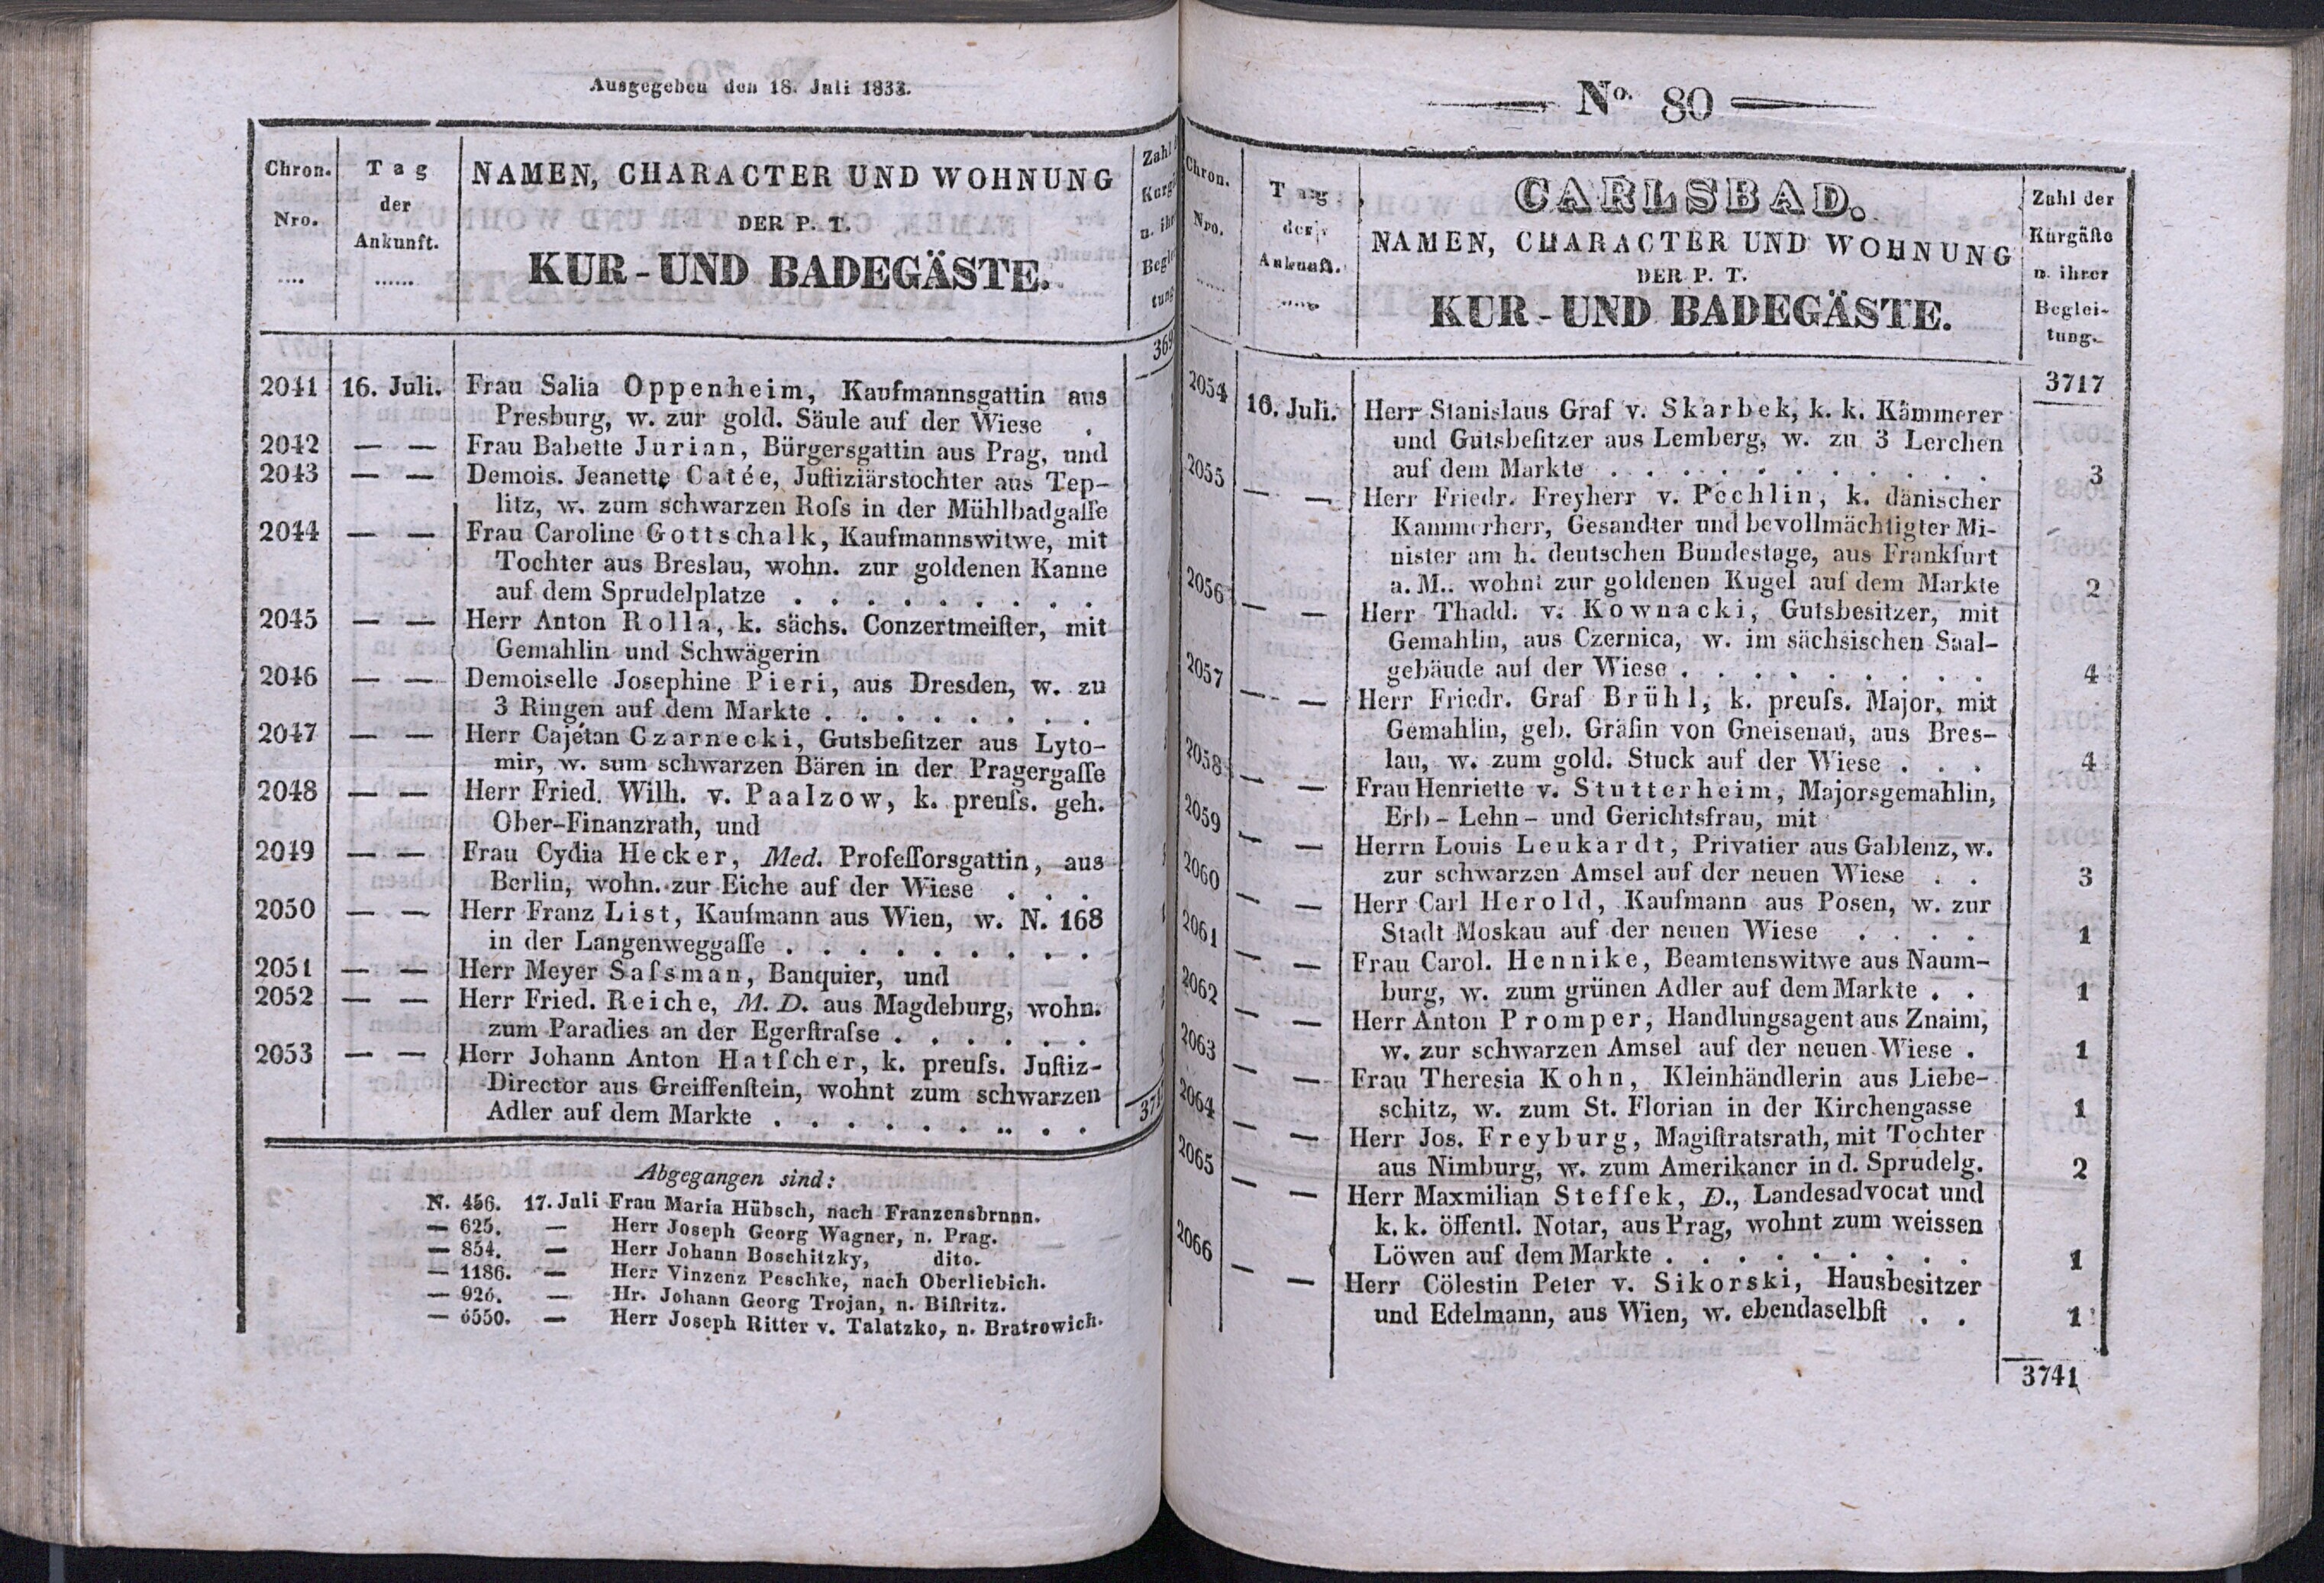 Ausgegeben den 18. Juli 1833.
Chron. Nro. ....
Tag der Ankunft. ......
NAMEN, CHARACTER UND WOHNUNG
DER P. T.
KUR-UND BADEGÄSTE.
Zahl
u. ihr
2041 16. Juli. Frau Salia Oppenheim, Kaufmannsgattin aus
Presburg, w. zur gold. Säule auf der Wiese .
2042 — — Frau Babette Jurian, Bürgersgattin aus Prag, und
2043 — — Demois. Jeanette Catée, Juſtiziärstochter aus Tep-
litz, w. zum schwarzen Roſs in der Mühlbadgaſſe
2044 — — Frau Caroline Gottschalk, Kaufmannswitwe, mit
Tochter aus Breslau, wohn. zur goldenen Kanne
auf dem Sprudelplatze . . . . . . . . .
2045 — — Herr Anton Rolla, k. sächs. Conzertmeiſter, mit
Gemahlin und Schwägerin
2046 — — Demoiselle Josephine Pieri, aus Dresden, w. zu
3 Ringen auf dem Markte . . . . . . . .
2047 — — Herr Cajetan Czarnecki, Gutsbeſitzer aus Lyto-
mir, w. sum schwarzen Bären in der Pragergaſſe
2048 — — Herr Fried. Wilh. v. Paalzow, k. preuſs. geh.
Ober-Finanzrath, und
2049 — — Frau Cydia Hecker, Med. Profeſſorsgattin, aus
Berlin, wohn. zur Eiche auf der Wiese . . .
2050 — — Herr Franz List, Kaufmann aus Wien, w. N. 168
in der Langenweggaſſe . . . . . . . . .
2051 — — Herr Meyer Saſsman, Banquier, und
2052 — — Herr Fried. Reiche, M. D. aus Magdeburg, wohn.
zum Paradies an der Egerſtraſse . . . . . .
2053 — — Herr Johann Anton Hatſcher, k. preuſs. Juſtiz-
Director aus Greiffenſtein, wohnt zum schwarzen
Adler auf dem Markte . . . . . . .. . .
Abgegangen sind:
N. 456. 17. Juli Frau Maria Hübsch, nach Franzensbrunn.
— 625. — Herr Joseph Georg Wagner, n. Prag.
— 854. — Herr Johann Boschitzky, dito.
— 1186. — Herr Vinzenz Peschke, nach Oberliebich.
— 926. — Hr. Johann Georg Trojan, n. Biſtritz.
— 6550. — Herr Joseph Ritter v. Talatzko, n. Bratrowich.
No. 80
Chron. Nro. ......
Tag der Ankunft. .....
CARLSBAD.
NAMEN, CHARACTER UND WOHNUNG
DER P. T.
KUR-UND BADEGÄSTE.
Zahl der
Kurgäſte
u. ihrer
Beglei-
tung.
3717
2054 16. Juli. Herr Stanislaus Graf v. Skarbek, k. k. Kämmerer
und Gutsbeſitzer aus Lemberg, w. zu 3 Lerchen
auf dem Markte . . . . . . . . . . . . 3
2055 — — Herr Friedr. Freyherr v. Pechlin, k. dänischer
Kammerherr, Gesandter und bevollmächtigter Mi-
nister am h. deutschen Bundestage, aus Frankfurt
a. M.. wohnt zur goldenen Kugel auf dem Markte 2
2056 — — Herr Thadd. v. Kownacki, Gutsbesitzer, mit
Gemahlin, aus Czernica, w. im sächsischen Saal-
gebäude auf der Wiese . . . . . . . . . 4
2057 — — Herr Friedr. Graf Brühl, k. preuſs. Major, mit
Gemahlin, geb. Gräfin von Gneisenau, aus Bres-
lau, w. zum gold. Stuck auf der Wiese . . . 4
2058 — — Frau Henriette v. Stutterheim, Majorsgemahlin,
Erb- Lehn- und Gerichtsfrau, mit
2059 — — Herrn Louis Leukardt, Privatier aus Gablenz, w.
zur schwarzen Amsel auf der neuen Wiese . . 3
2060 — — Herr Carl Herold, Kaufmann aus Posen, w. zur
Stadt Moskau auf der neuen Wiese . . . . 1
2061 — — Frau Carol. Hennike, Beamtenswitwe aus Naum-
burg, w. zum grünen Adler auf dem Markte . . 1
2062 — — Herr Anton Promper, Handlungsagent aus Znaim,
w. zur schwarzen Amsel auf der neuen Wiese . 1
2063 — — Frau Theresia Kohn, Kleinhändlerin aus Liebe-
schitz, w. zum St. Florian in der Kirchengasse 1
2064 — — Herr Jos. Freyburg, Magiſtratsrath, mit Tochter
aus Nimburg, w. zum Amerikaner in d. Sprudelg. 2
2065 — — Herr Maxmilian Steffek, D., Landesadvocat und
k. k. öffentl. Notar, aus Prag, wohnt zum weissen
Löwen auf dem Markte . . . . . . . . . 1
2066 — — Herr Cölestin Peter v. Sikorski, Hausbesitzer
und Edelmann, aus Wien, w. ebendaselbſt . . 1
3741